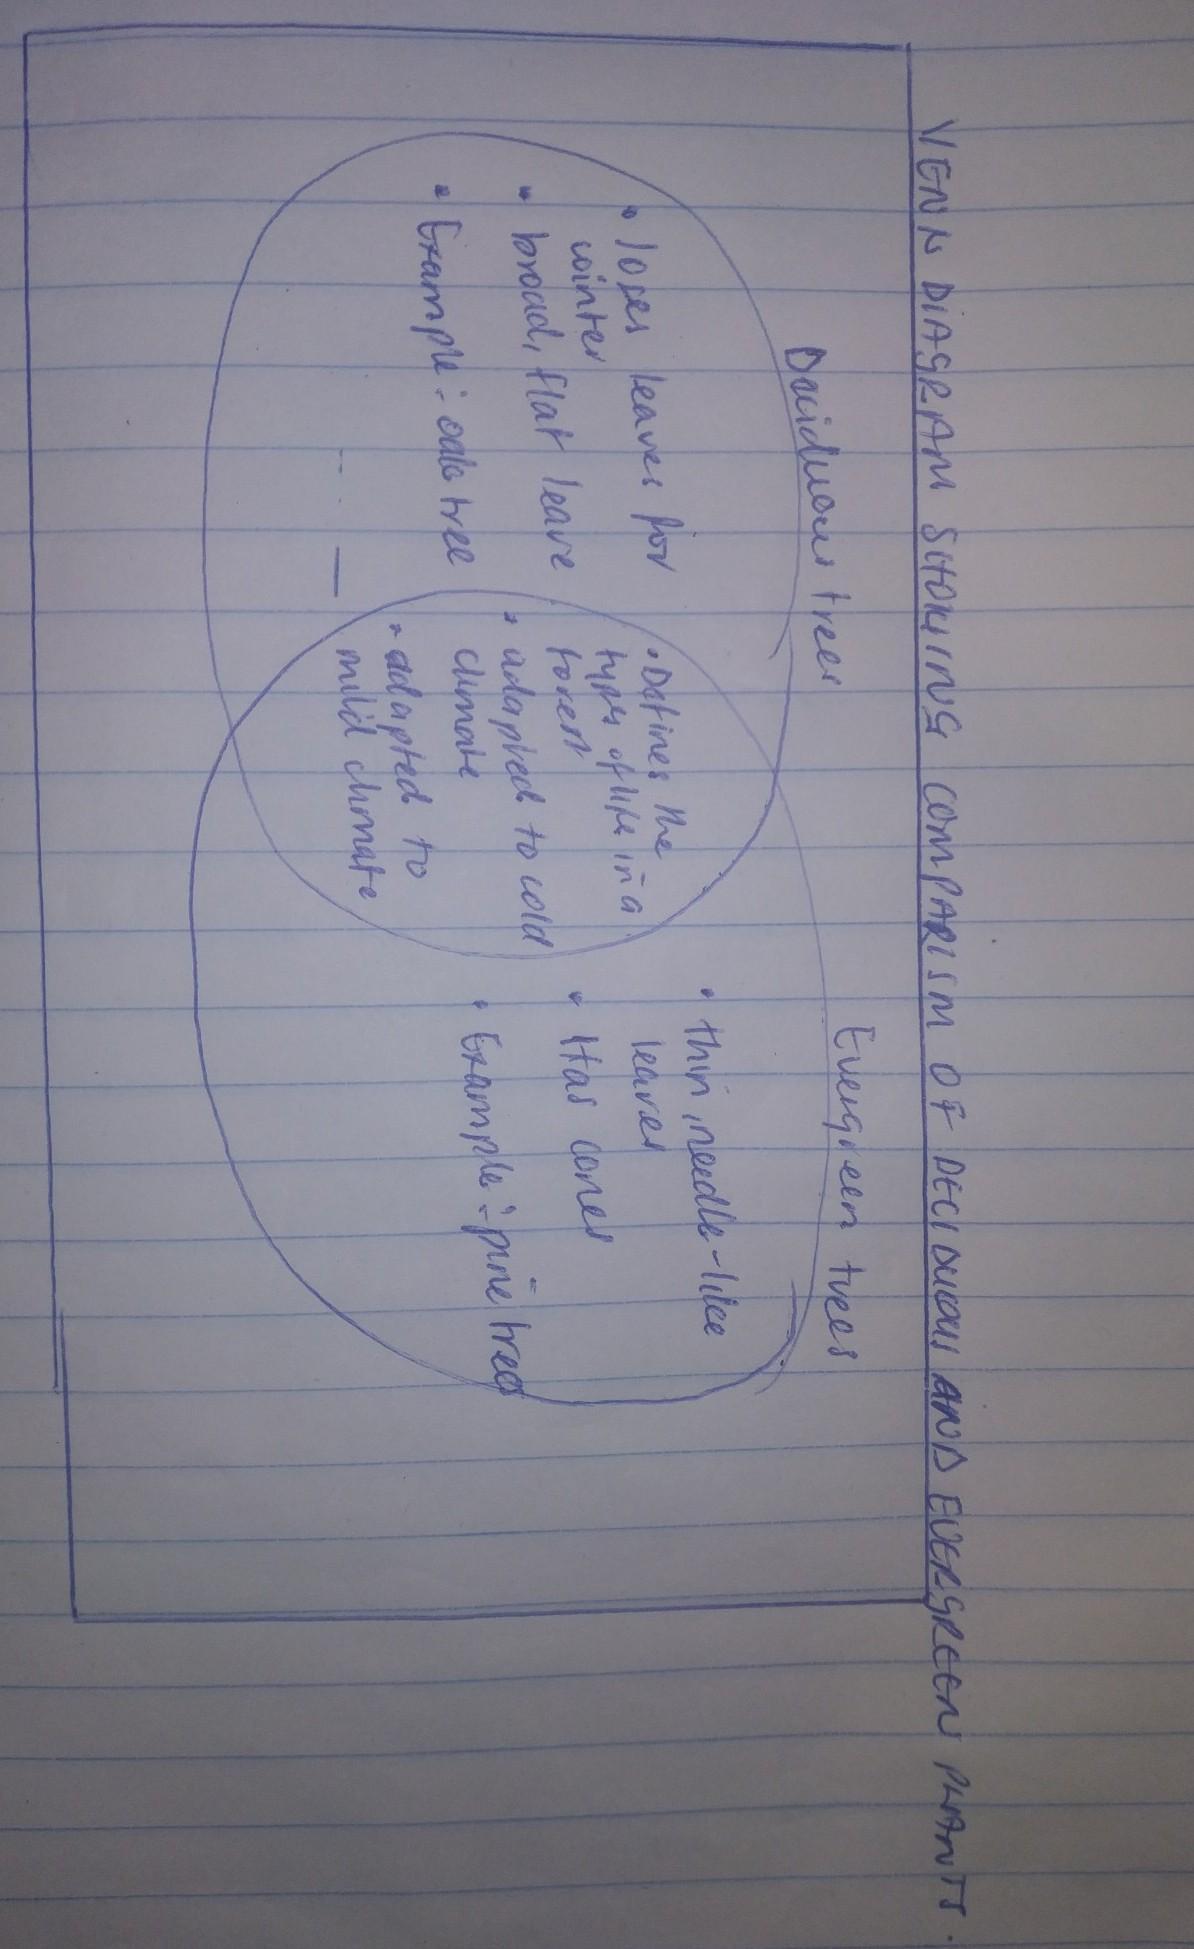 VENN DIAGRAM SHOWING COMPARISM OF DECIDUOUS AND EVERGREEN PLANTS.
Deciduous trees
• loses leaves for
winter
• broad, flat leave
• Example: oak tree
• Defines the
type of life in a
forest
• adapted to cold
climate
• adapted to
mild climate
Evergreen trees
• thin, needle-like
leaves
• Has cones
• Example: pine trees